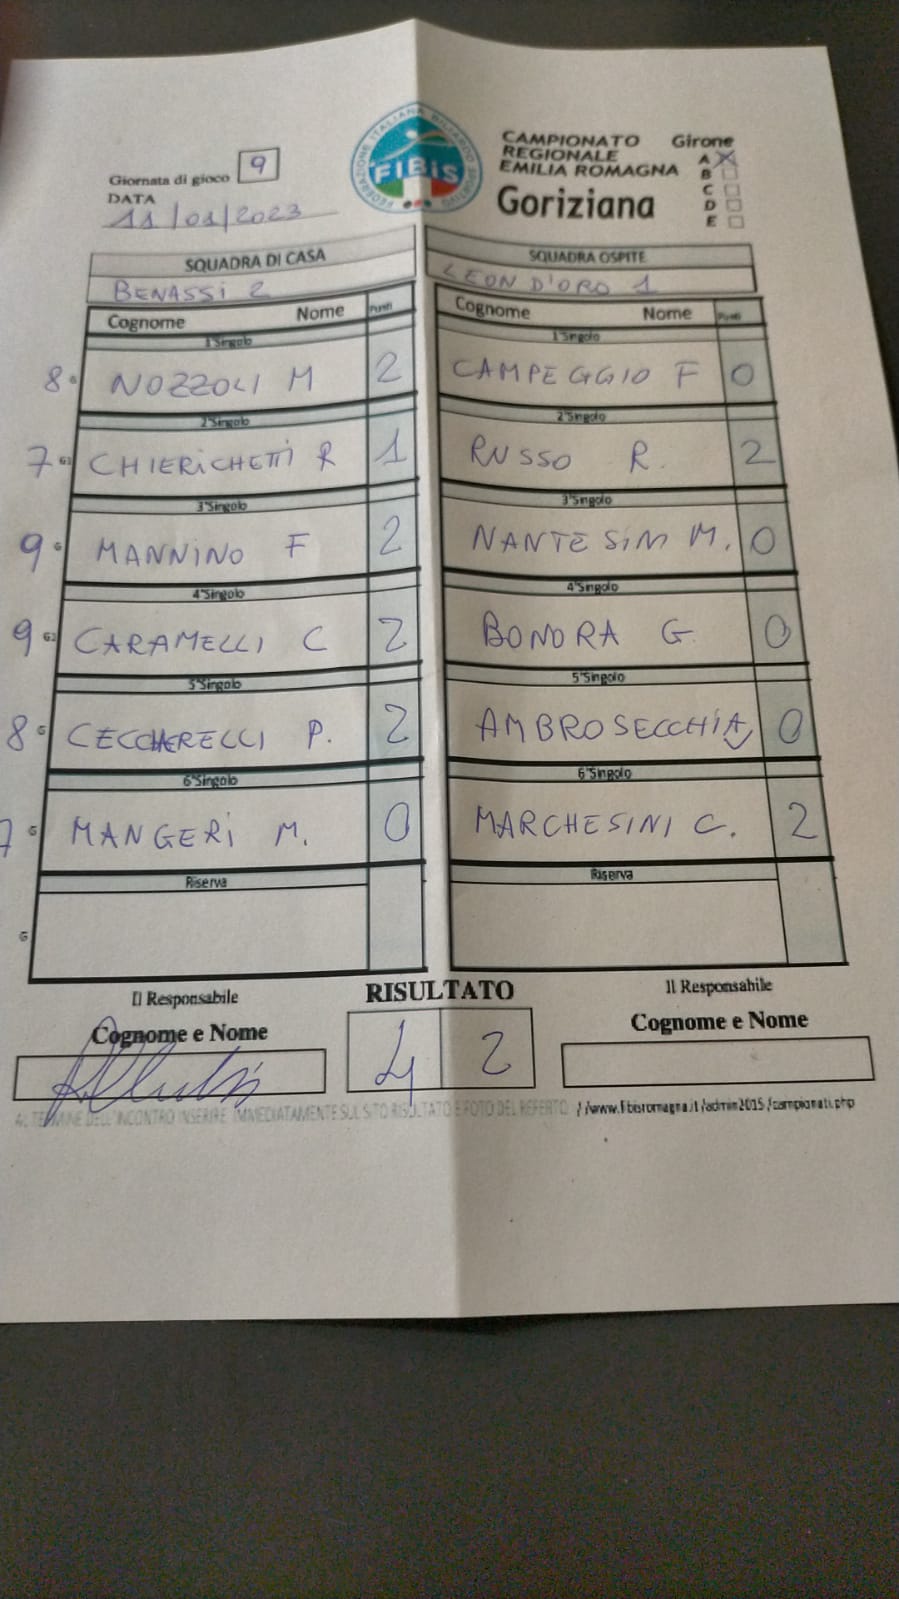 Giornata di gioco 9
DATA
11/01/2023
FEDERAZIONE ITALIANA BILIARDO SPORTIVO
FIBiS
CAMPIONATO
REGIONALE
EMILIA ROMAGNA
Goriziana
Girone
A X
B
C
D
E
SQUADRA DI CASA
BENASSI 2
SQUADRA OSPITE
LEON D'ORO 1
Cognome Nome Punti
Cognome Nome Punti
1°Singolo
1°Singolo
8 NOZZOLI M 2
CAMPEGGIO F 0
2°Singolo
2°Singolo
7 G1 CHIERICHETTI R 1
RUSSO R. 2
3°Singolo
3°Singolo
9 G MANNINO F 2
NANTESINI M. 0
4°Singolo
4°Singolo
9 G2 CARAMELLI C 2
BONORA G. 0
5°Singolo
5°Singolo
8 G CECCHERELLI P. 2
AMBROSECCHIA 0
6°Singolo
6°Singolo
7 G MANGERI M. 0
MARCHESINI C. 2
Riserva
Riserva
G
Il Responsabile
RISULTATO
Il Responsabile
Cognome e Nome
4 2
Cognome e Nome
AL TERMINE DELL'INCONTRO INSERIRE IMMEDIATAMENTE SUL SITO RISULTATO E FOTO DEL REFERTO //www.fibisromagna.it/admin2015/campionati.php